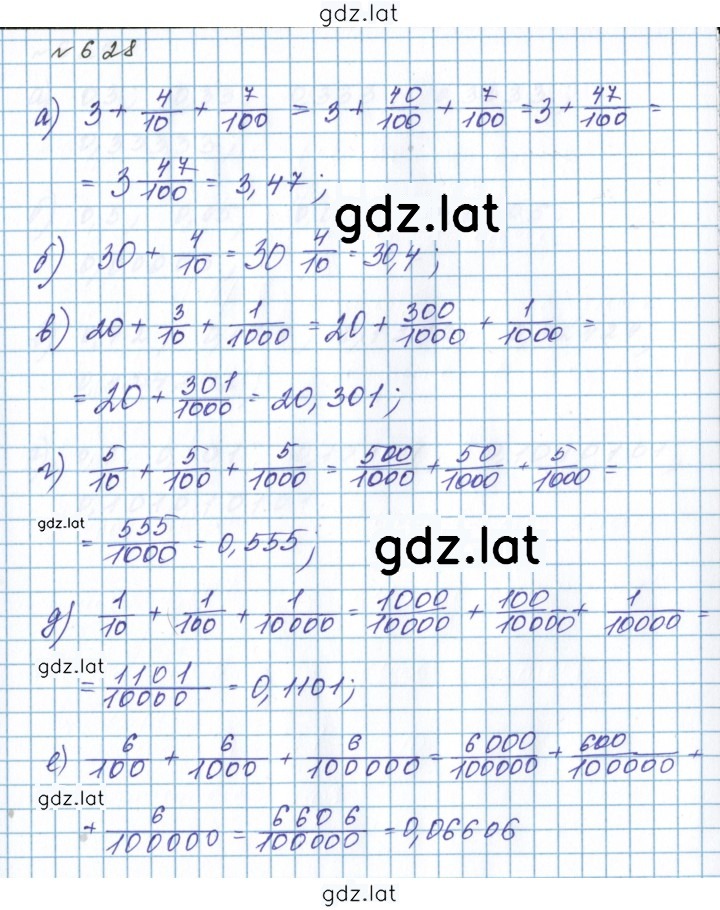 gdz.lat
№ 628
а) 3 + 4/10 + 7/100 = 3 + 40/100 + 7/100 = 3 + 47/100 =
= 3 47/100 = 3,47;
gdz.lat
б) 30 + 4/10 = 30 4/10 = 30,4;
в) 20 + 3/10 + 1/1000 = 20 + 300/1000 + 1/1000 =
= 20 + 301/1000 = 20,301;
г) 5/10 + 5/100 + 5/1000 = 500/1000 + 50/1000 + 5/1000 =
gdz.lat
= 555/1000 = 0,555;
gdz.lat
д) 1/10 + 1/100 + 1/10000 = 1000/10000 + 100/10000 + 1/10000 =
gdz.lat
= 1101/10000 = 0,1101;
е) 6/100 + 6/1000 + 6/100000 = 6000/100000 + 600/100000 +
gdz.lat
+ 6/100000 = 6606/100000 = 0,06606
gdz.lat